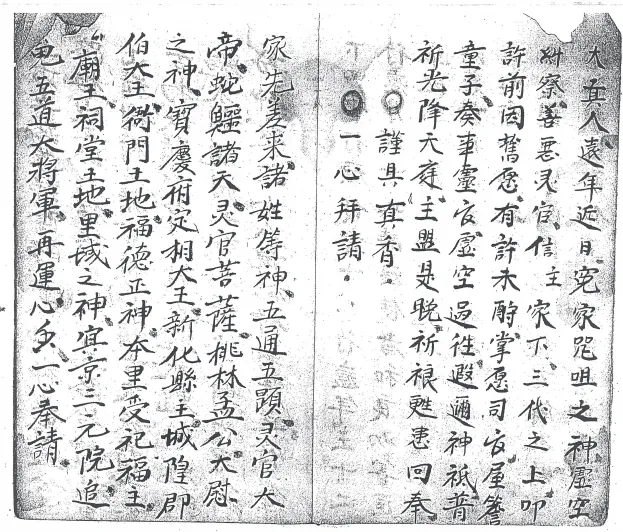 大真人遠年近日冤家咒咀之神虛空
糾察善惡灵官信主家下三代之上叩
許前因舊愿有許未酧掌愿司官屋簷
童子奏事靈官虛空過往遐邇神祇普
祈光降天庭主盟是晚祈禳甦患回奉
謹具真香
一心拜請
家先差来諸姓等神五通五顕灵官大
帝蛇鱷諸天灵官菩薩桃林孟公大尉
之神寶慶府定相大王新化縣主城隍郡
伯大王衙門土地福德正神本里受祀福主
廟王祠堂土地里城之神宜京三元院追
五道大將軍再運心香一心奉請